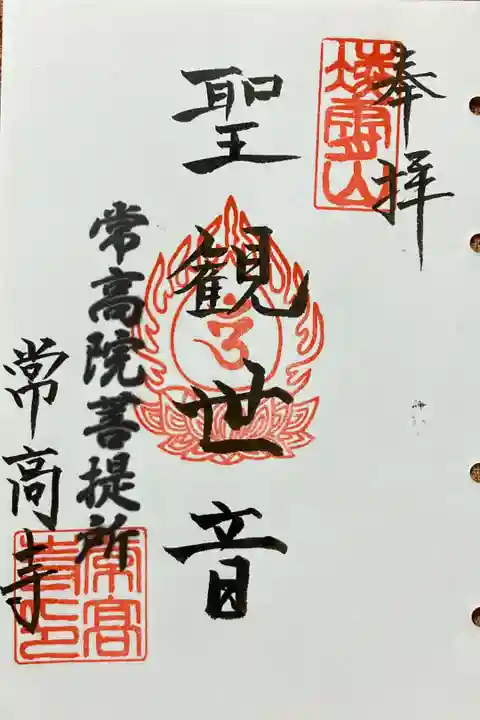 奉拝
聖観世音
常高院菩提所
常高寺
常高寺印